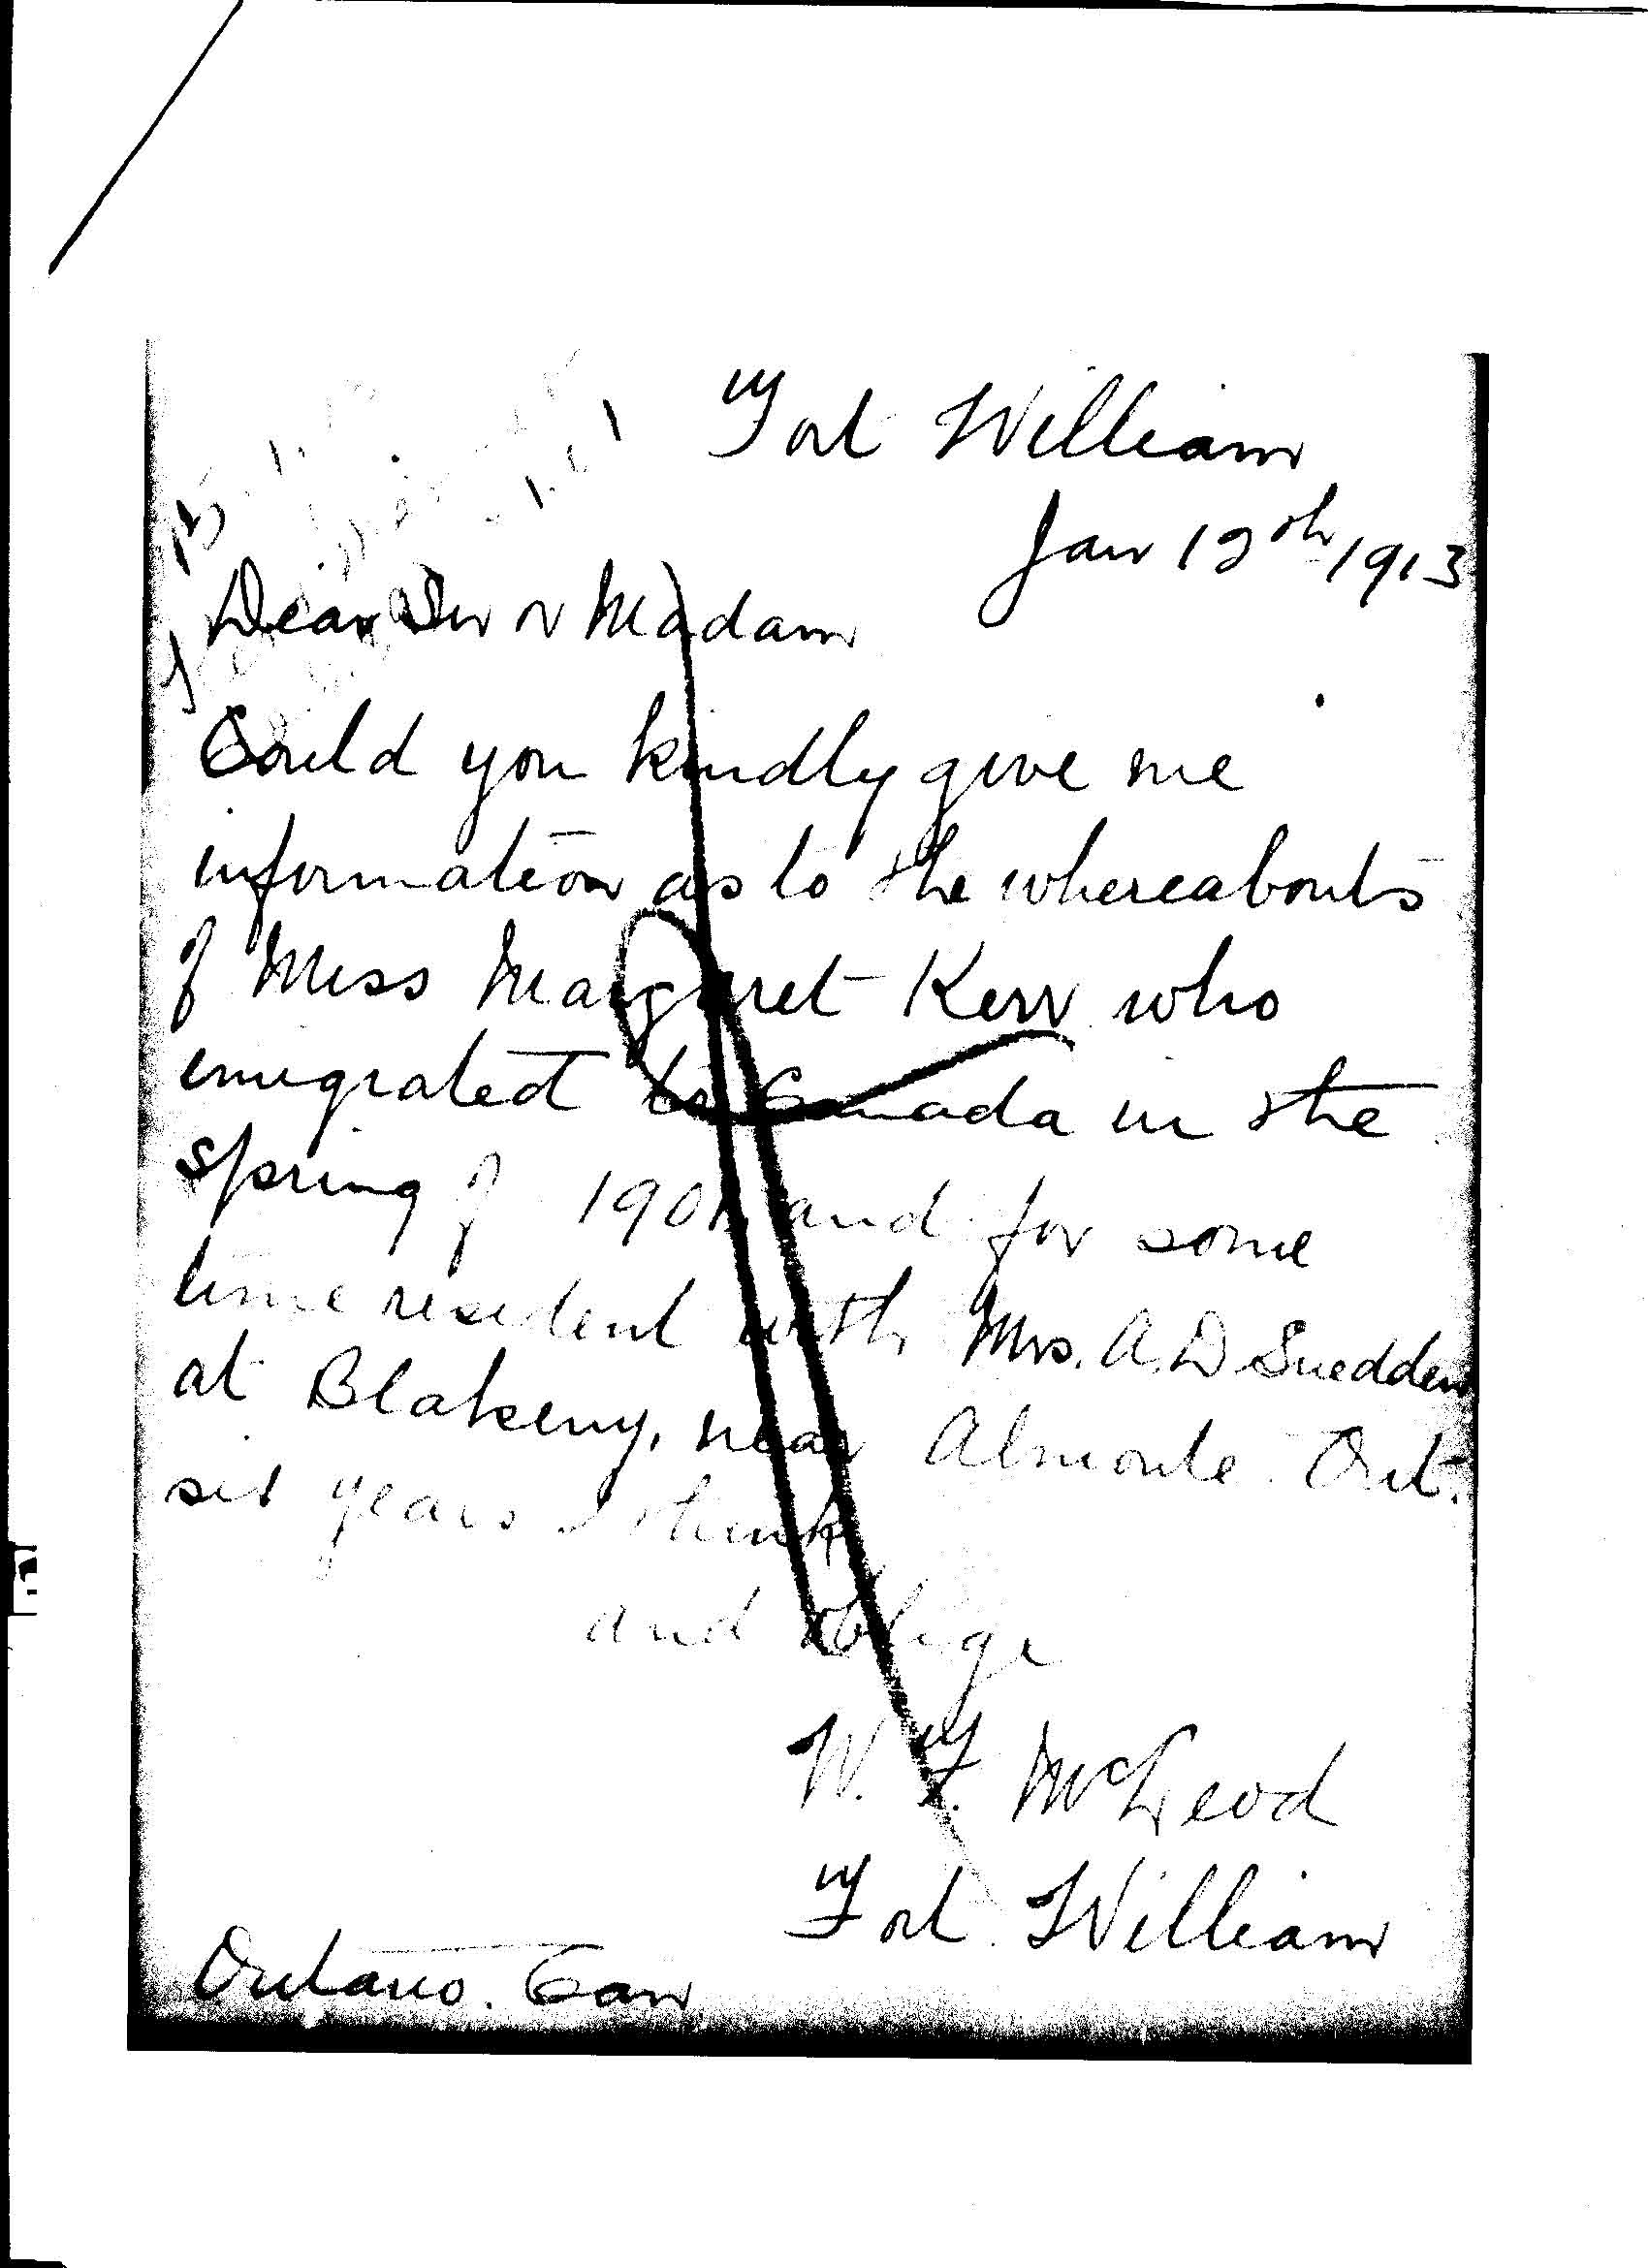 Fort William
Jan 12th 1913
Dear Sir or Madam
Could you kindly give me
information as to the whereabouts
of Miss Margaret Kerr who
emigrated to Canada in the
spring of 1901, and for some
time resident with Mrs. A. D Snedden
at Blakeny, near Almonte. Ont.
six years I think
and oblige
W. F. McLeod
Fort William
Ontario. Can